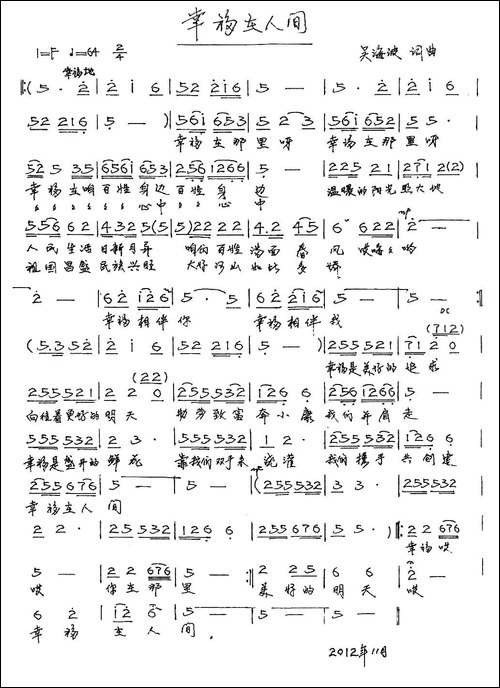 幸福在人间
1=F ♩=64 2/4
吴海波 词曲
幸福地
‖:( 5 · 2 | 2 1 6 | 52 216 | 5 — | 52 216 | 5 — | 5 · 2 | 2 1 6 |
52 216 | 5 — ) | 561 653 | 5 2 3 | 561 652 | 5 5 · |
幸福在那里呀 幸福在那里呀
52 5 35 | 6561 653 | 256 1266 | 5 — | 225 21 | 271 2(2) |
幸福在咱百姓身边 百姓身边 温暖的阳光照大地
心中 心中
5556 62 | 432 5(5 | 5)22 22 | 4.2 45 | 6 622 | 2 — |
人民生活日新月异 咱们百姓满面春风
祖国昌盛民族兴旺 大好河山
2 — | 62 126 | 5 · 5 | 62 216 | 5 — | 5 — :‖
幸福相伴你 幸福相伴我
DC
(712)
(5.3 52 | 2 1 6 | 52 216 | 5 — ) | 255521 | 71 2 0 |
幸福是美好的追求
(22)
255521 | 2 2 0 | 255532 | 126 6 | 256 1266 | 255532 |
的明天 勤劳致富奔小康 我们并肩走
555532 | 2 3 · | 555532 | 1 2 · | 255532 | 126 6 |
幸福是盛开的鲜花 靠我们双手来浇灌 我们携手共创建
255676 | 5 — | 5 — | (255532 | 3 3 · | 255532 |
幸福在人间
2 2 · | 255532 | 126 6 | 255676 | 5 5 · ) |: 2 2 676 |
幸福哎
5 — | 2 2 676 | 5 — :‖ 2 25 | 6 6 | 2 — |
哎 你在那里 美好的明天 哎
6 2 | 12 6 | 5 — | 5 — | 5 — | 5 0 ‖
幸福在人间
2012年11月